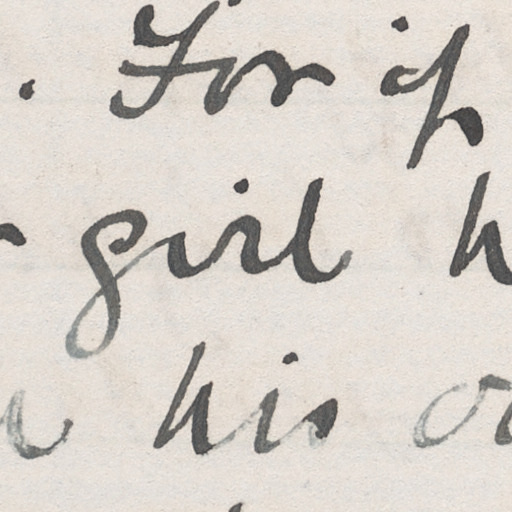 . For if
girl h
his o